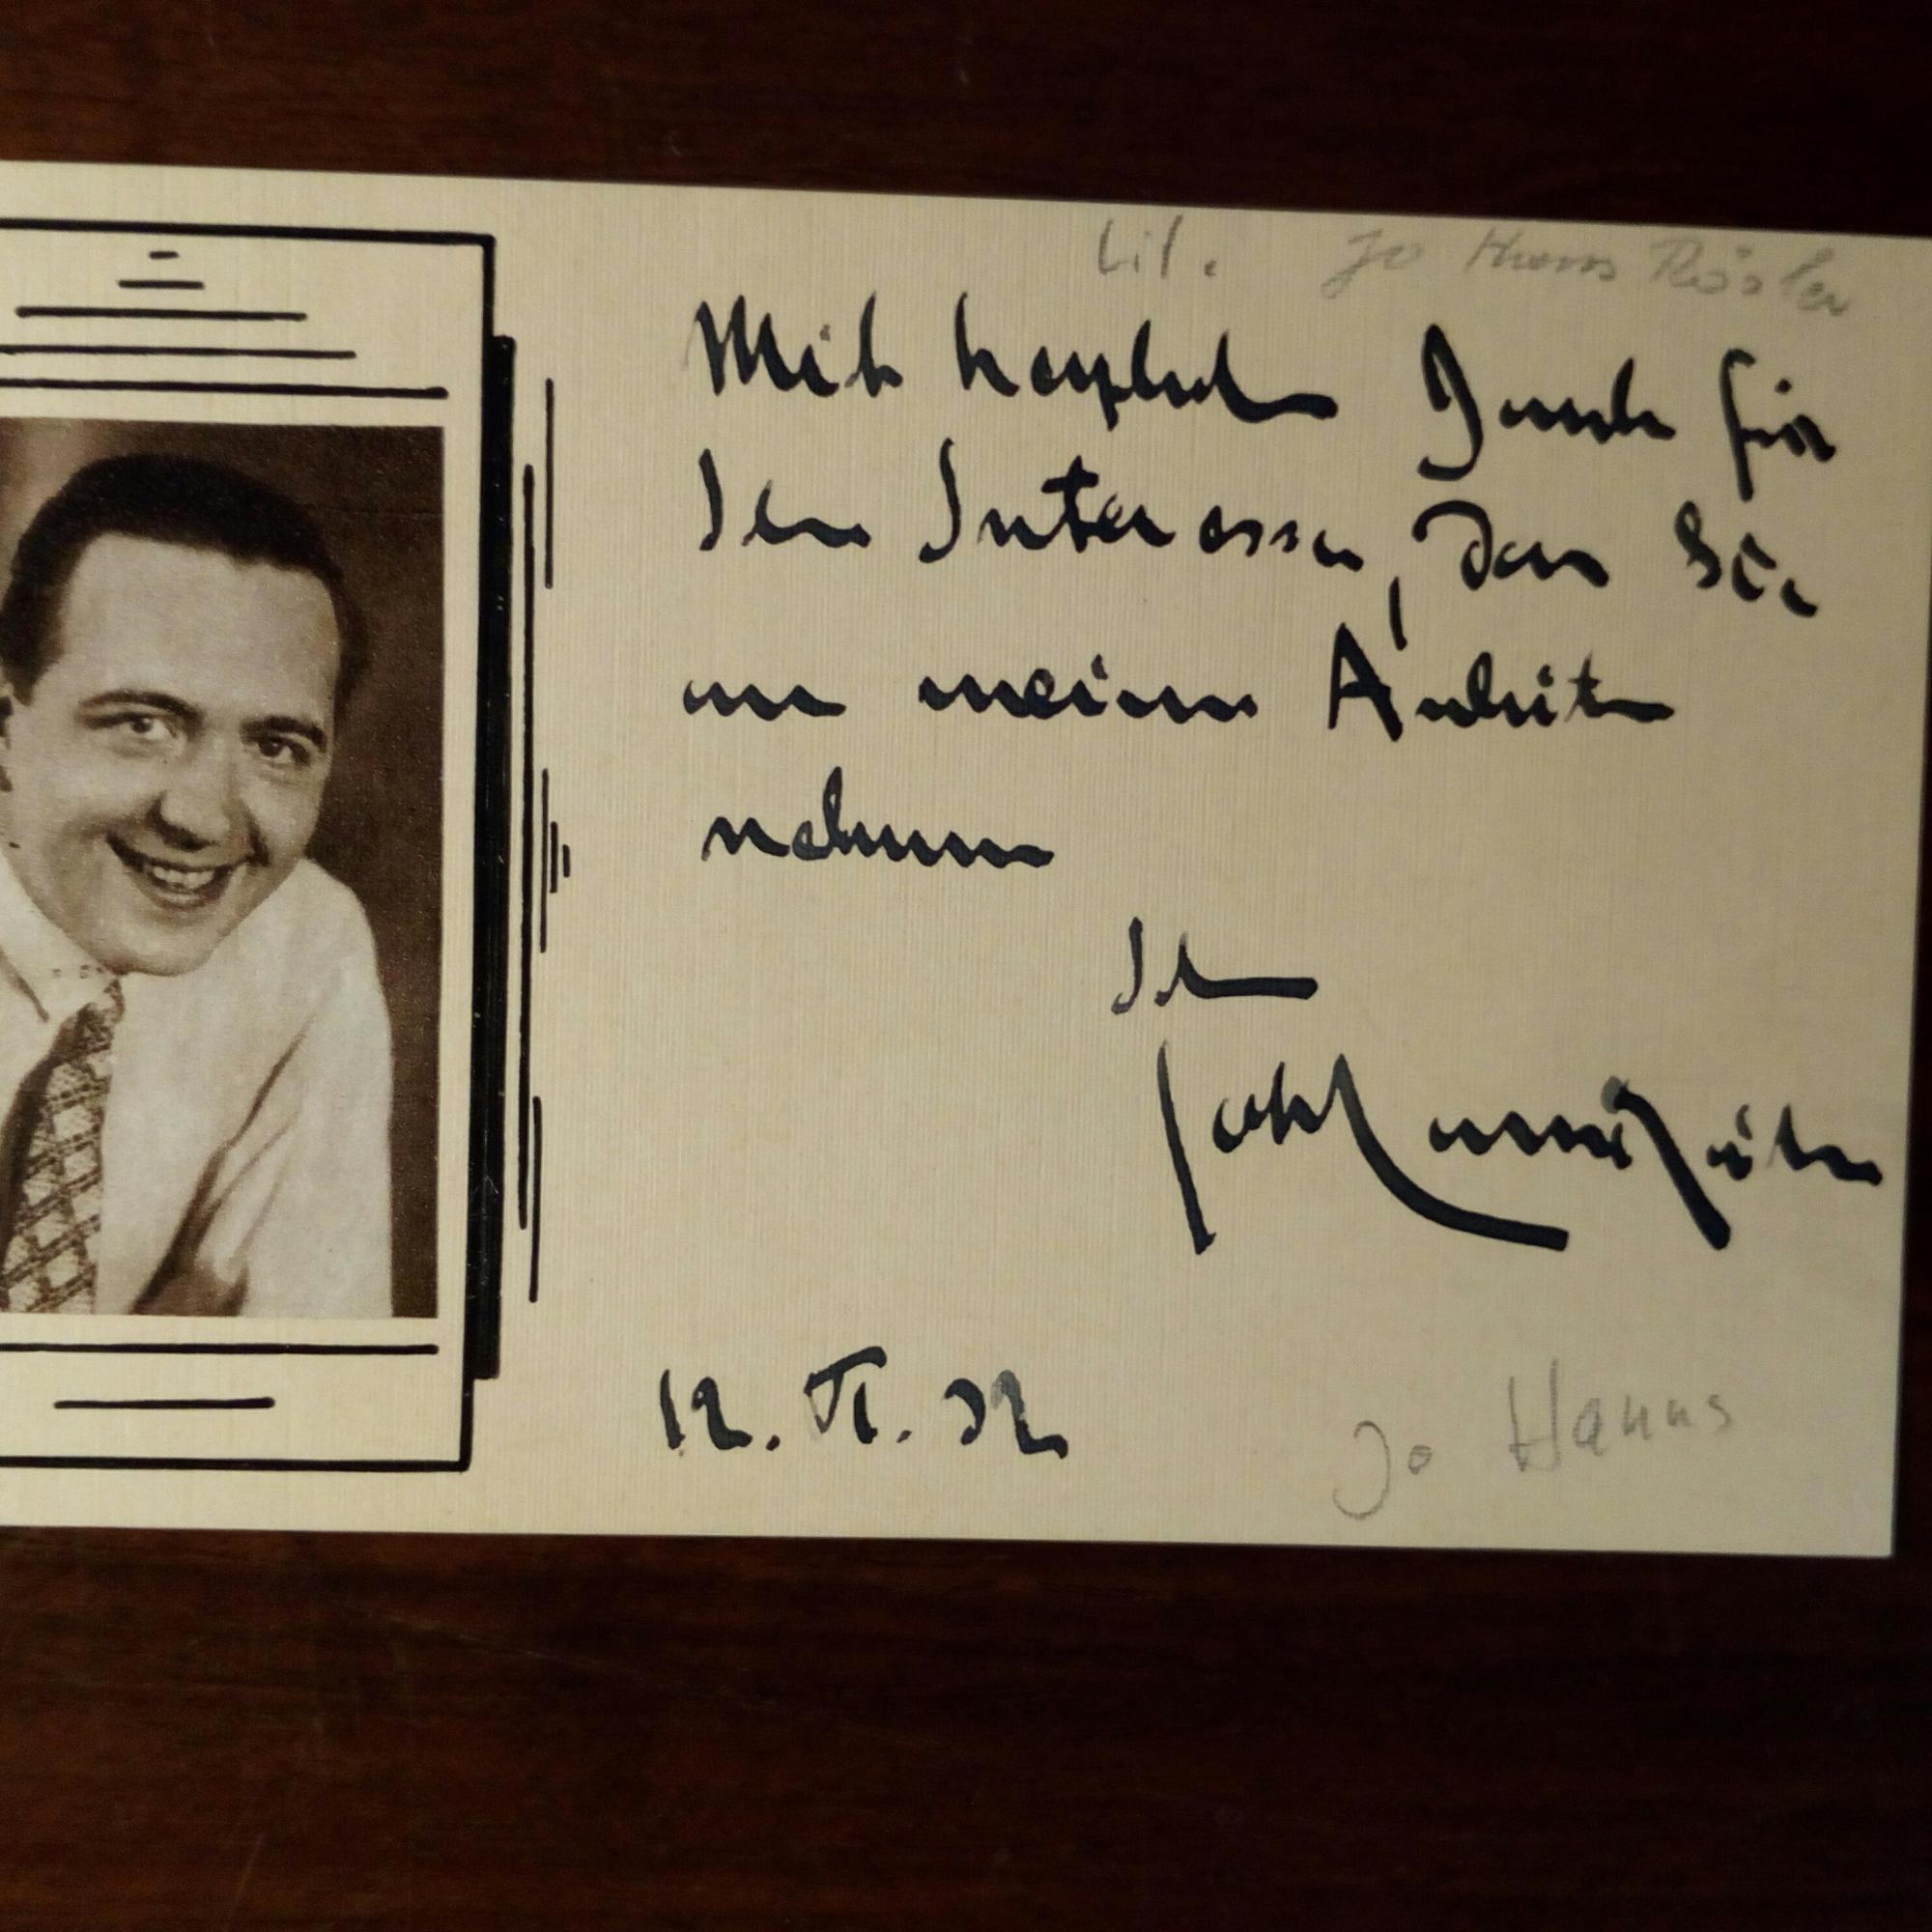 Lit. Jo Hanns Rösler
Mit herzlichem Dank für
Ihr Interesse, das Sie
an meinen Arbeiten
nehmen
Ihr
Jo Hanns Rösler
12. VI. 32
Jo Hanns